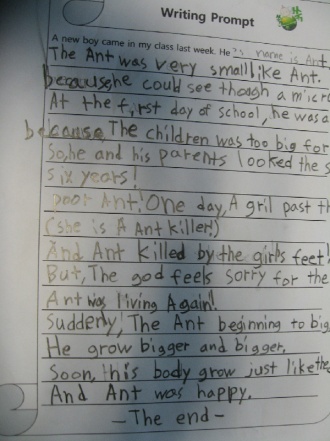 Writing Prompt
A new boy came in my class last week. He's name is Ant.
The Ant was very small like Ant.
because, he could see though a micro
At the first day of school, he was a
because, The children was too big for
So, he and his parents looked the s
six years!
poor Ant! One day, A gril past th
(she is A Ant killer!)
And Ant killed by the girl's feet!
But, The god feels sorry for the
Ant was living Again!
Suddenly, The Ant beginning to big
He grow bigger and bigger.
Soon, his body grow just like the
And Ant was happy.
- The end -